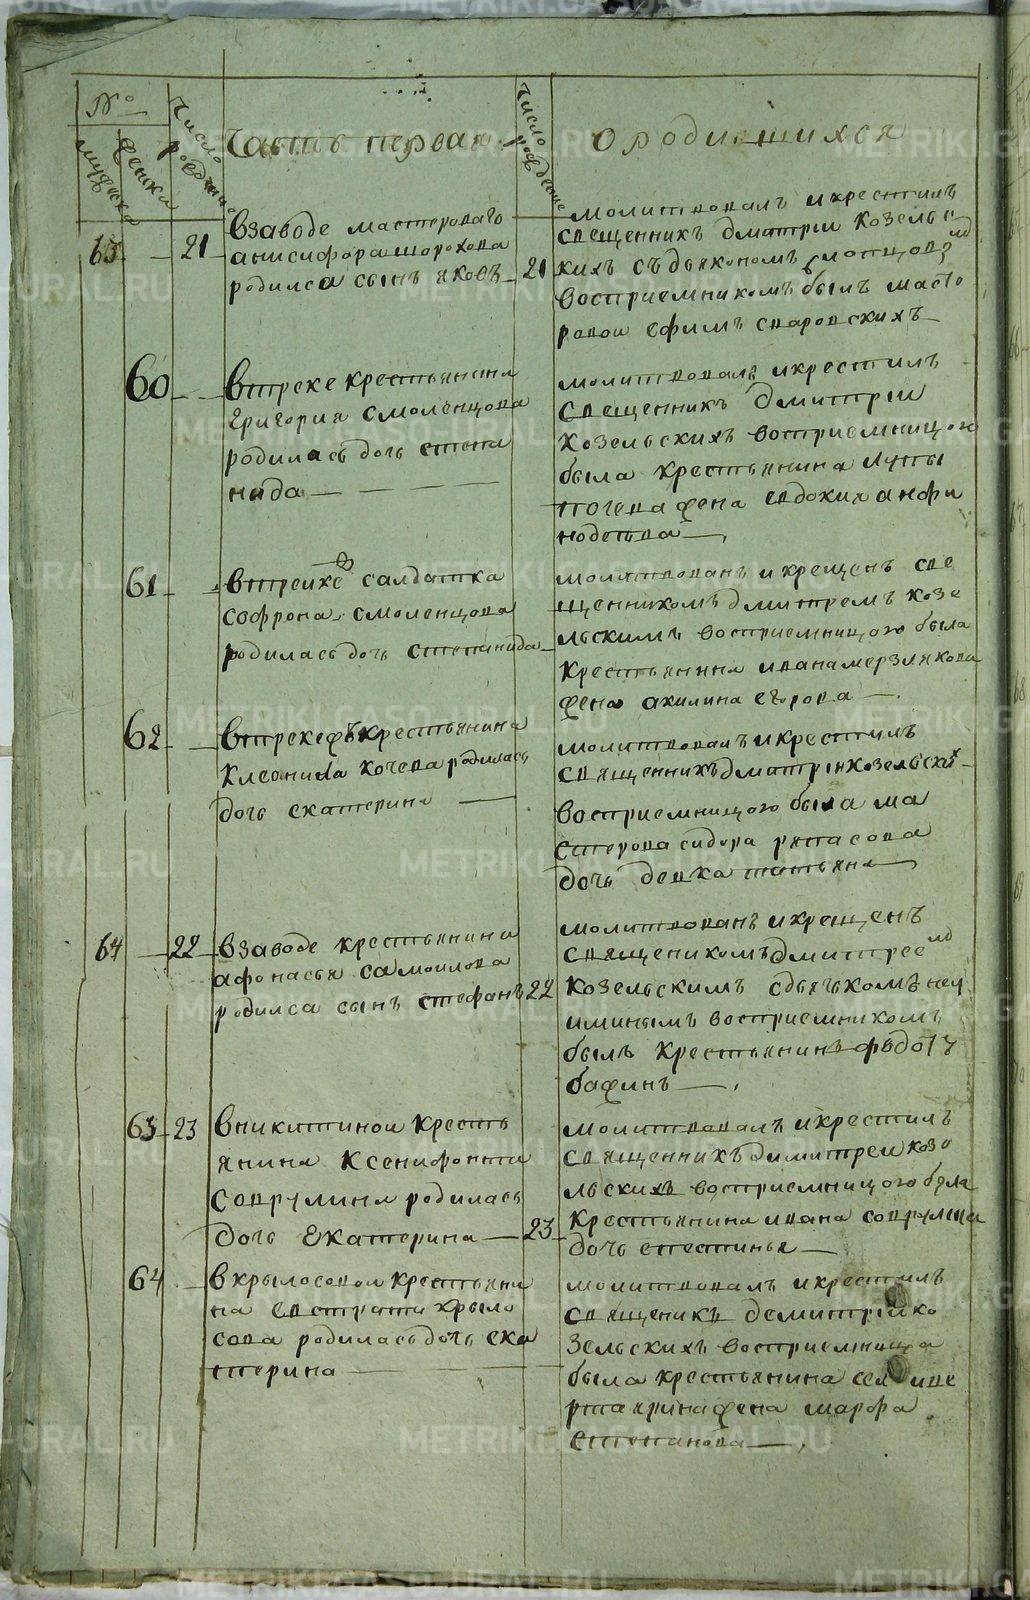 №
мужска
женска
Число рождение
Часть первая
Число рождение
о родившихся
63
21
Взаводе мастероваго
анисифора шорохова
родился сынъ яковъ
21
молитвовалъ икрестилъ
священникъ дмитрии козельс
кихъ съ дьякономъ
восприемникомъ былъ масте
ровои ефимъ сваровскихъ
60
Втреке крестьянина
григория смоленцова
родилась дочь степа
нида
молитвовалъ икрестилъ
священникъ дмитрии
козельскихъ восприемницою
была крестьянина лупы
кочева жена евдокия анфи
ноденва
61
втреике салдатка
софрона смоленцова
родилась дочь степанида
молитвованъ икрещенъ све
щенникомъ дмитремъ козе
льскимъ восприемницою была
крестьянина ивана мерзлякова
жена акилина егорова
62
втрекежъ крестьянина
клеоника кочева родилась
дочь екатерина
молитвовалъ икрестилъ
священникъ дмитрии козельских
восприемницою была ма
стерова сидора
дочь девка татьяна
64
22
взаводе крестьянина
афонасья самоилова
родился сынъ стефанъ
22
молитвованъ икрещенъ
священикомъ дмитрее
козельскимъ сдьячкомъ
восприемникомъ
былъ крестьянинъ федотъ
бажинъ
63
23
вникитинои кресть
янина ксенифонта
соврулина родилась
дочь Екатерина
23
молитвовалъ икрестилъ
священникъ димитреи козе
льскихъ восприемницою была
крестьянина ивана соврулина
дочь естестинья
64
вкрылосовои крестьяни
на евстрата крыло
сова родилась дочь ека
терина
молитвовалъ икрестилъ
священикъ демитрии ко
зельскихъ восприемница
была крестьянина
жена марфа
степанова
METRIKI.GASO-URAL.RU